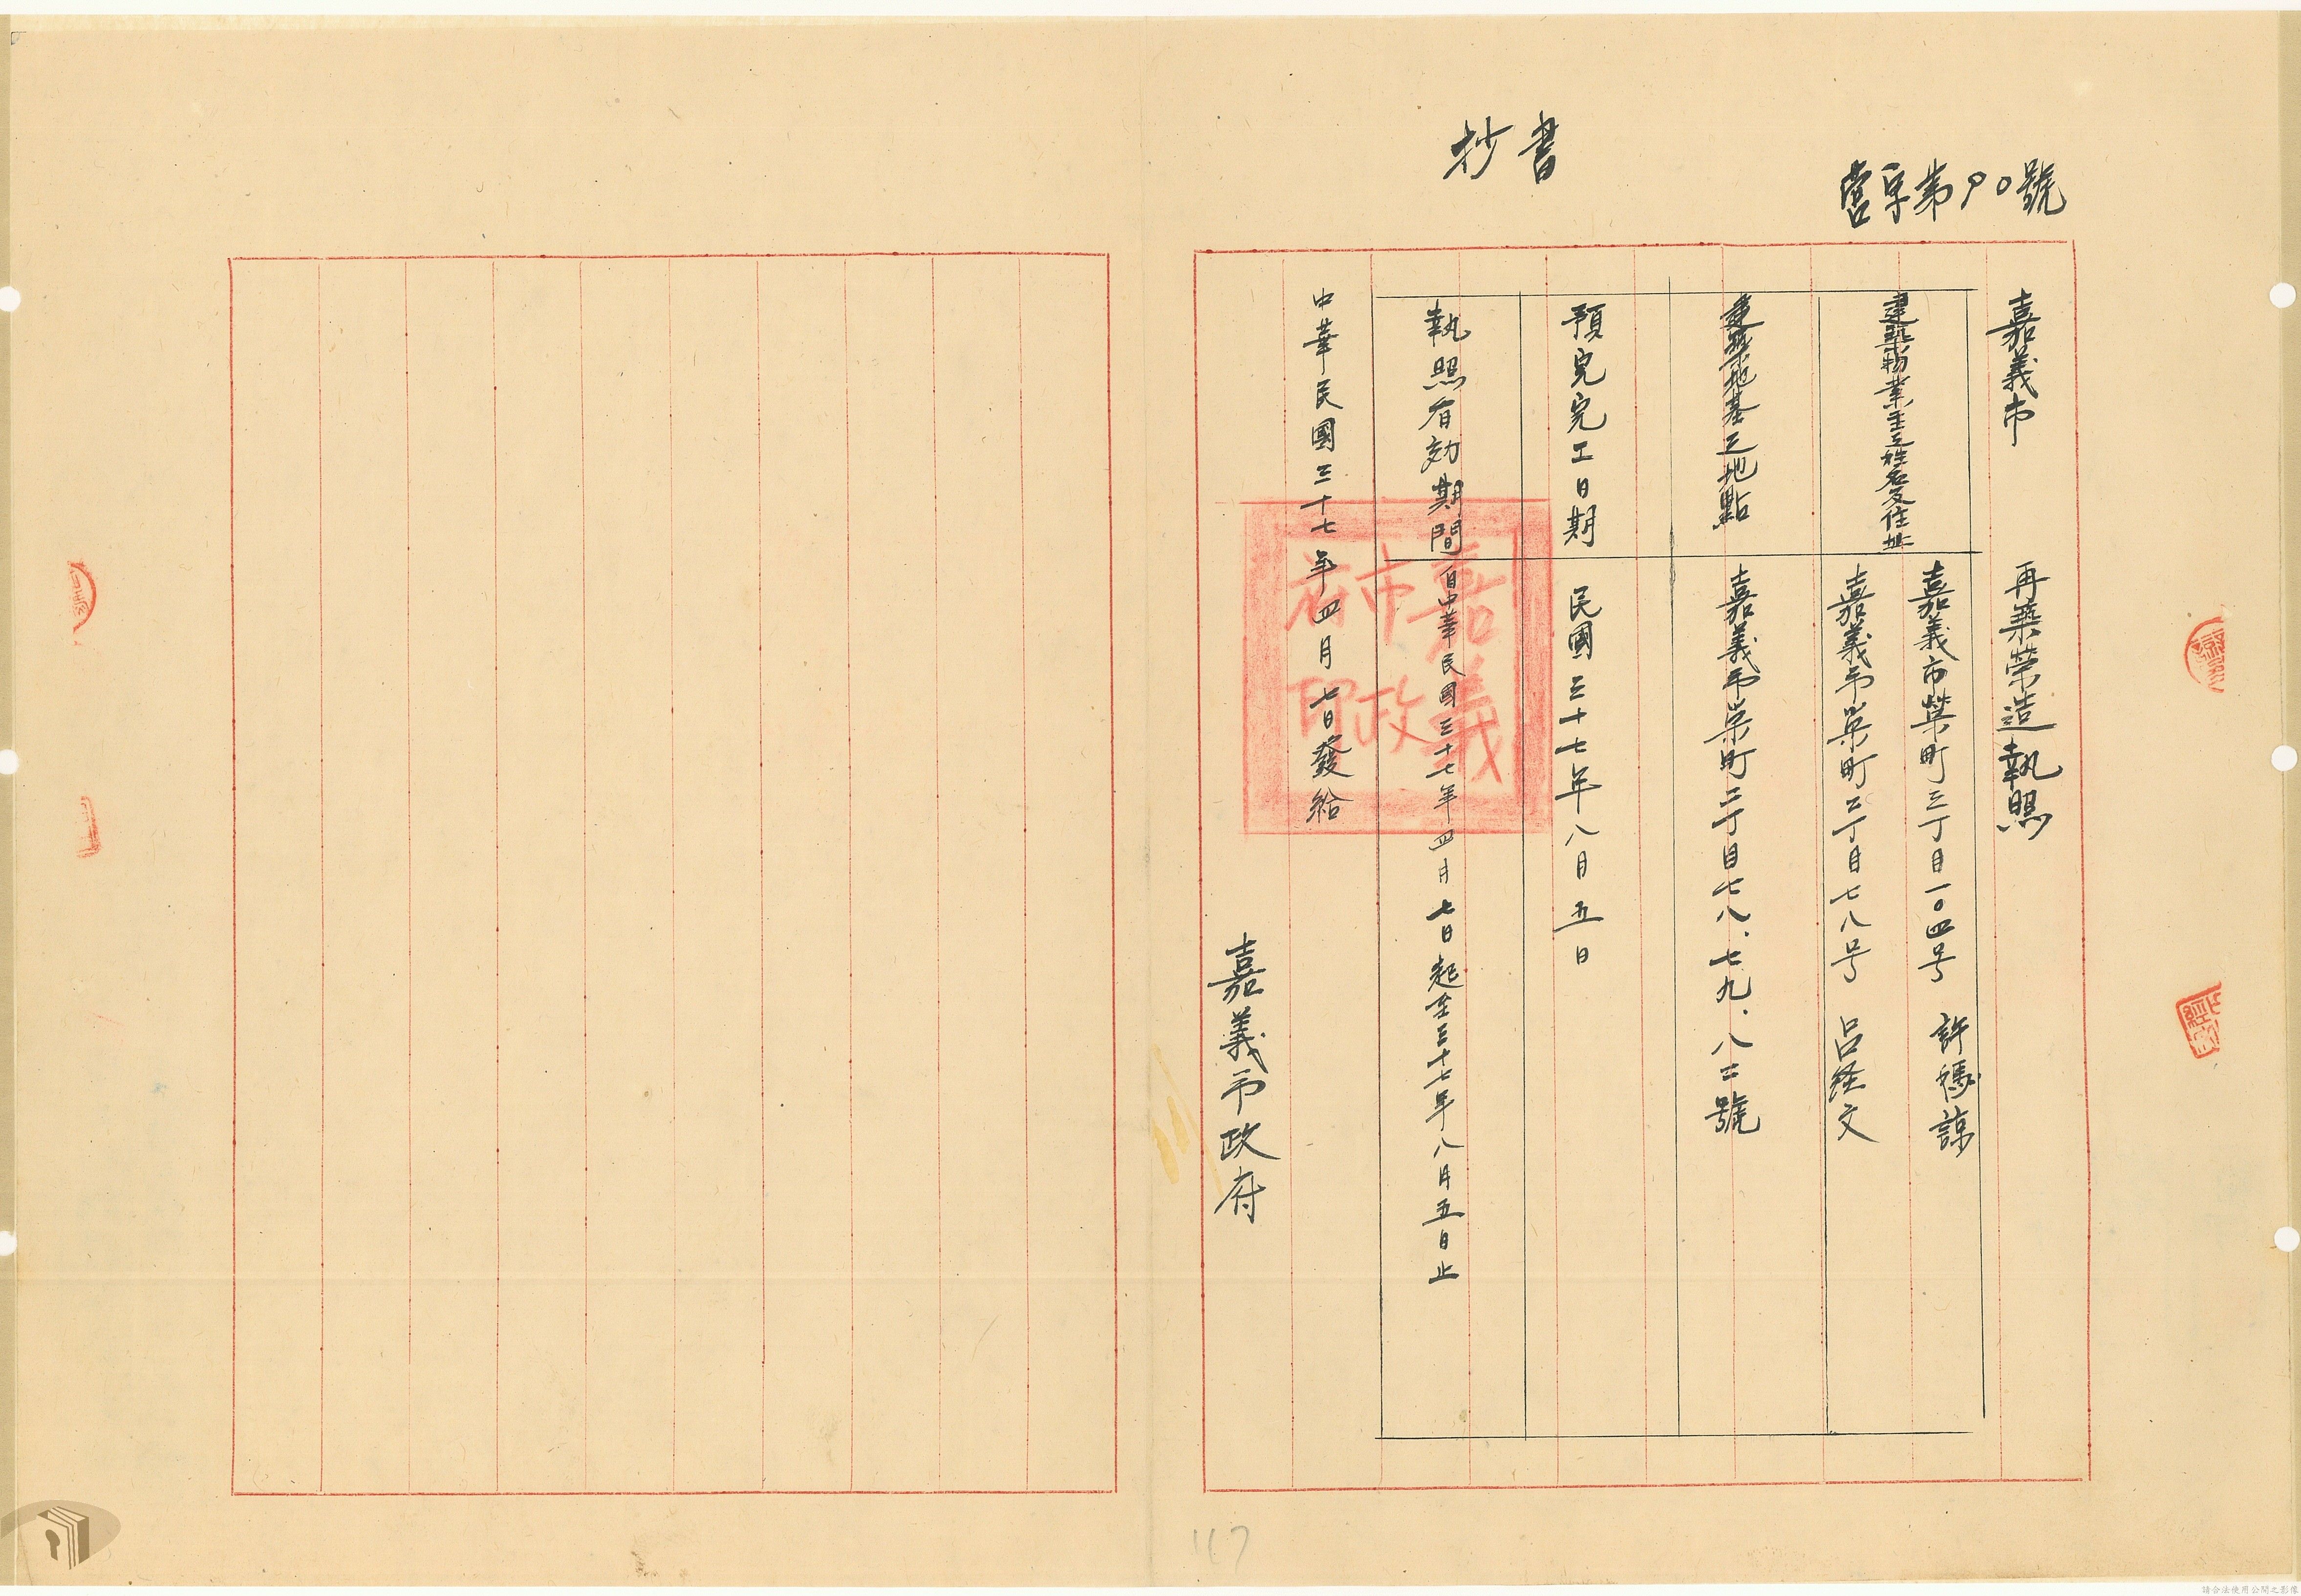 營字第90號
抄書
嘉義市　再築營造執照
建築物業主之姓名及住址
嘉義市榮町三丁目一〇四号　許媽諒
嘉義市栄町二丁目七八号　呂経文
建築地基之地點
嘉義市栄町二丁目七八．七九．八二號
預定完工日期
民國三十七年八月五日
執照有効期間
自中華民國三十七年四月七日起至三十七年八月五日止
中華民國三十七年四月七日發給
嘉義市政府
嘉義市政府印
117
請合法使用公開之影像